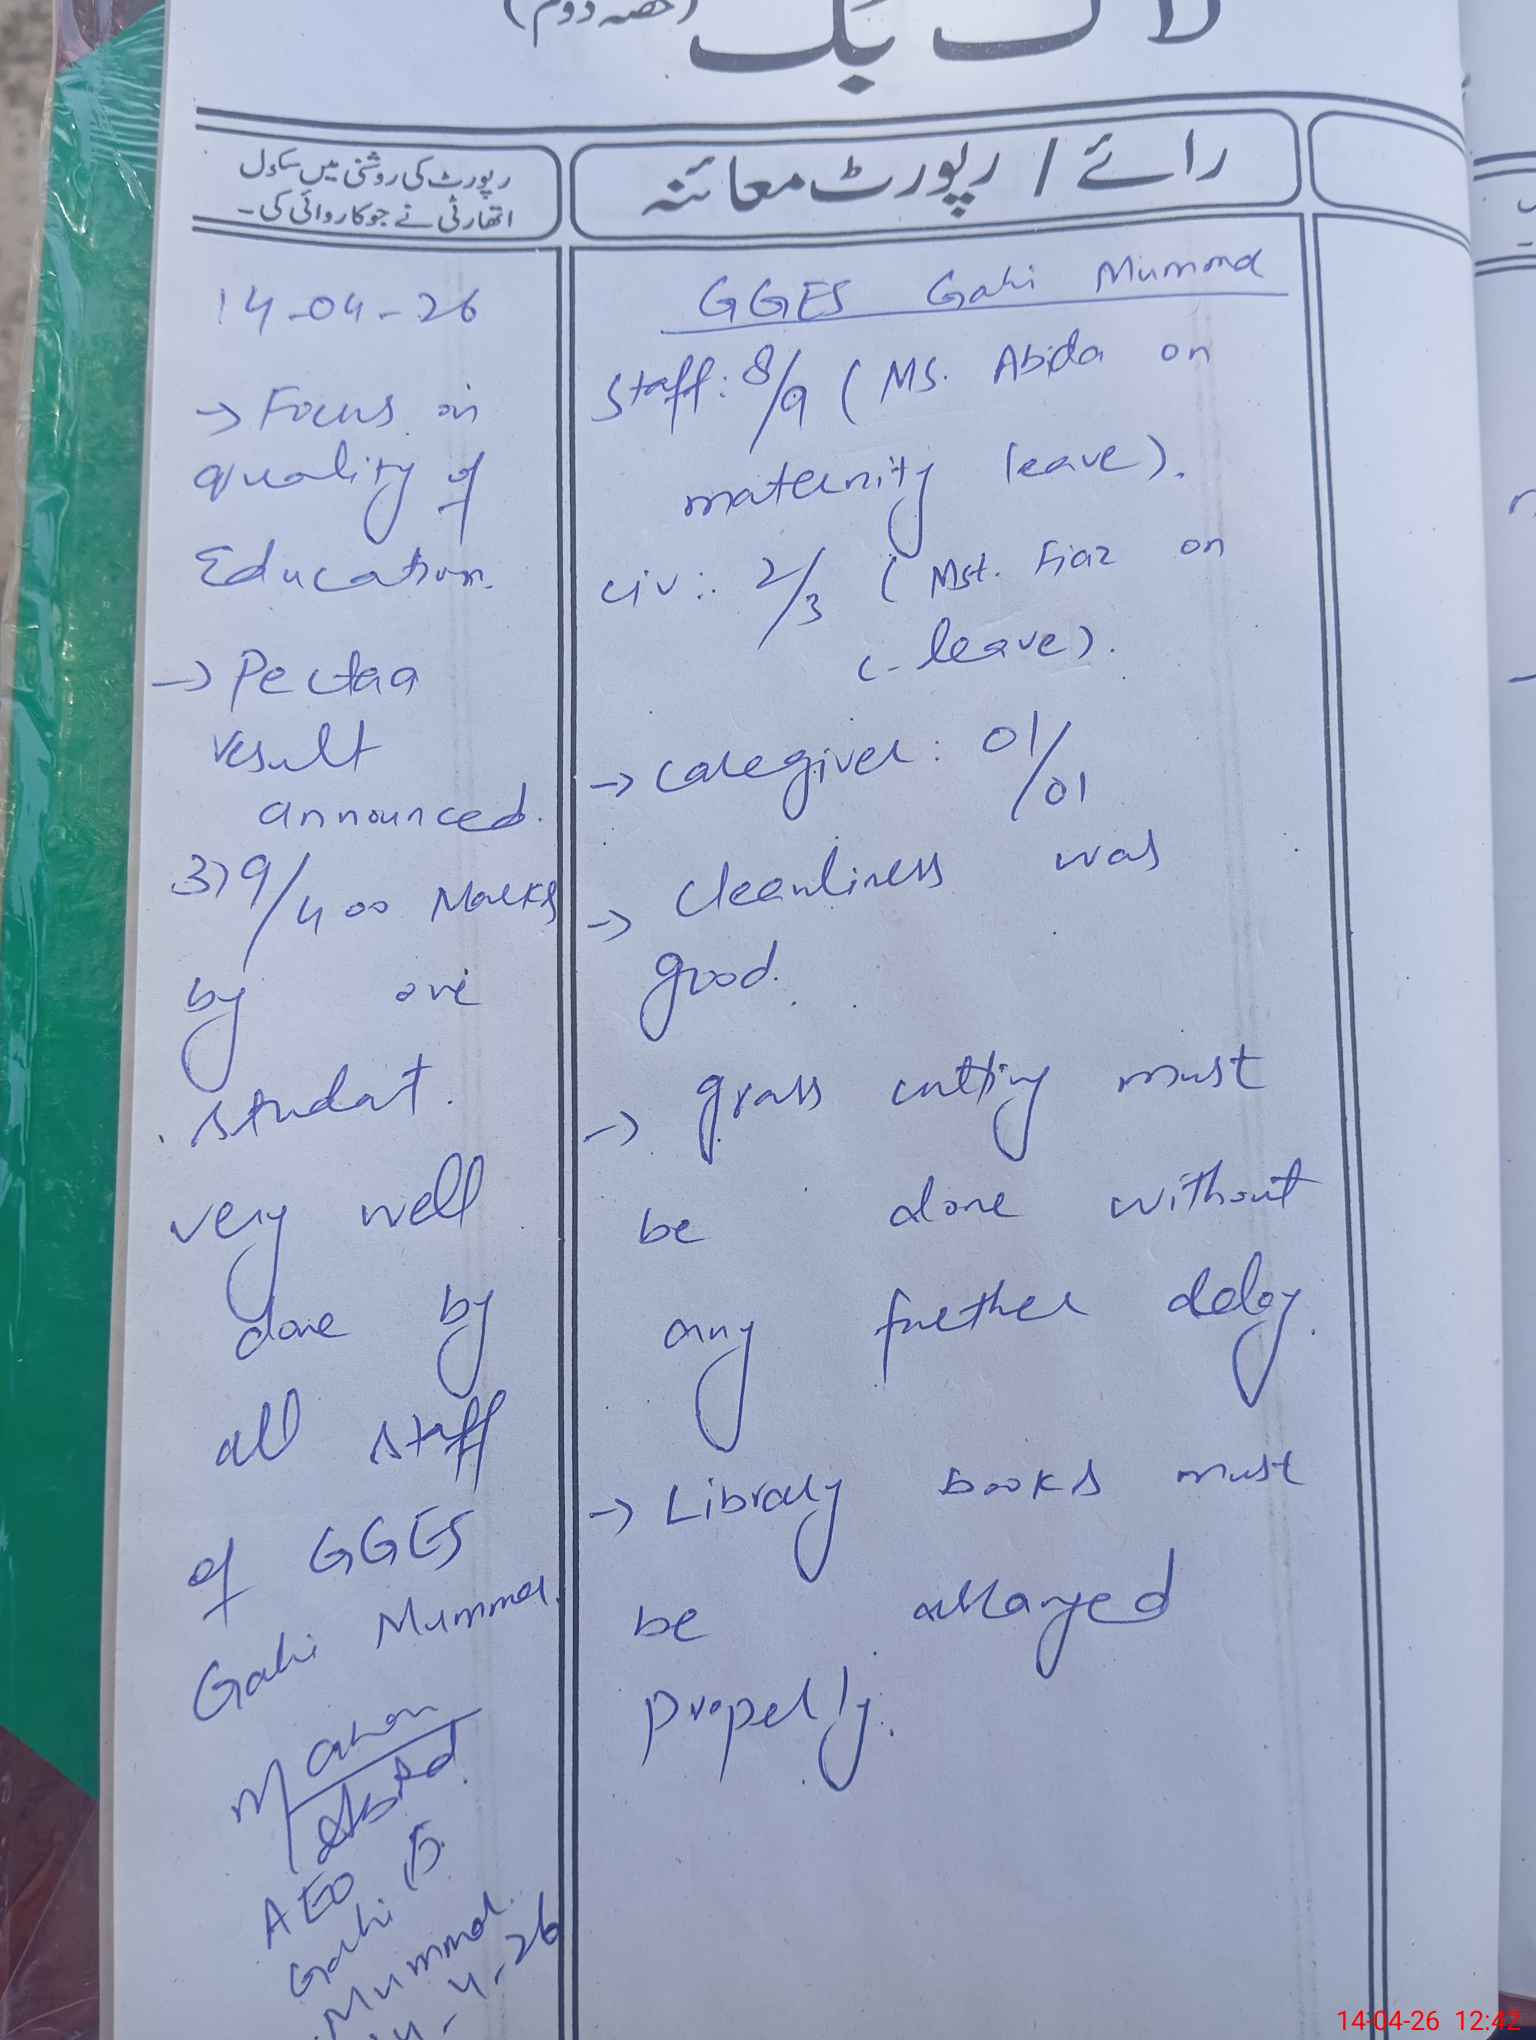 لاگ بک (حصہ دوم)
رائے / رپورٹ معائنہ
رپورٹ کی روشنی میں سکول
اتھارٹی نے جو کاروائی کی۔
GGES Gahi Mummar
Staff: 8/9 (Ms. Abida on
maternity leave).
civ: 2/3 (Mst. Fiaz on
leave).
→ caregiver: 01/01
→ cleanliness was
good.
→ grass cutting must
be done without
any further delay.
→ Library books must
be arranged
properly.
14-04-26
→ Focus on
quality of
Education.
→ Pectaa
result
announced.
379/400 Marks
by one
student.
very well
done by
all staff
of GGES
Gahi Mummar.
AEO
Gahi
Mummar.
14-4-26
14-04-26 12:42